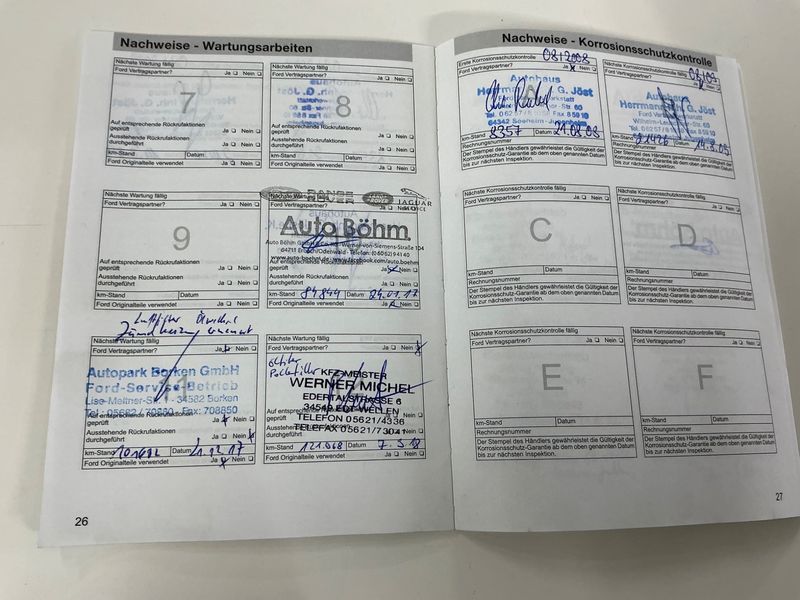 Nachweise - Wartungsarbeiten
Nächste Wartung fällig
Ford Vertragspartner? Ja ❑ Nein ❑
7
Auf entsprechende Rückrufaktionen
geprüft Ja ❑ Nein ❑
Ausstehende Rückrufaktionen
durchgeführt Ja ❑ Nein ❑
km-Stand Datum
Ford Originalteile verwendet Ja ❑ Nein ❑
Nächste Wartung fällig
Ford Vertragspartner? Ja ❑ Nein ❑
8
Auf entsprechende Rückrufaktionen
geprüft Ja ❑ Nein ❑
Ausstehende Rückrufaktionen
durchgeführt Ja ❑ Nein ❑
km-Stand Datum
Ford Originalteile verwendet Ja ❑ Nein ❑
Nächste Wartung fällig
Ford Vertragspartner? Ja ❑ Nein ❑
9
Auf entsprechende Rückrufaktionen
geprüft Ja ❑ Nein ❑
Ausstehende Rückrufaktionen
durchgeführt Ja ❑ Nein ❑
km-Stand Datum
Ford Originalteile verwendet Ja ❑ Nein ❑
Nächste Wartung fällig
RANGE ROVER
JAGUAR
Ford Vertragspartner?
Auto Böhm
www.auto-boehm.de
geprüft Ja Nein ❑
Ausstehende Rückrufaktionen
durchgeführt Ja ❑ Nein ❑
km-Stand 84844 Datum 24.01.17
Ford Originalteile verwendet Ja Nein ❑
Luftfilter Ölwechsel
Ford Vertragspartner? Ja Nein ❑
Autopark Borken GmbH
Ford-Service-Betrieb
Lise-Meitner-Str. 34582 Borken
Tel.: 05682 / 70880, Fax: 708850
Auf entsprechende Rückrufaktionen
geprüft Ja Nein ❑
Ausstehende Rückrufaktionen
durchgeführt Ja ❑ Nein
km-Stand Datum
Ford Originalteile verwendet Ja Nein ❑
Nächste Wartung fällig
Ford Vertragspartner? Ja ❑ Nein
Pollenfilter
KFZ-MEISTER
WERNER MICHEL
EDERTALSTRASSE 6
34549 EDT-WELLEN
TELEFON 05621/4336
TELEFAX 05621/73041
durchgeführt Ja ❑ Nein ❑
km-Stand 121.068 Datum 7.5.18
Ford Originalteile verwendet Ja ❑ Nein ❑
26
Nachweise - Korrosionsschutzkontrolle
Erste Korrosionsschutzkontrolle 08/2008
Ford Vertragspartner? Ja Nein ❑
A
Autohaus
Herrmann G. Jöst
64342 Seeheim-Jugenheim
km-Stand 8357 Datum 21.08.08
Rechnungsnummer
Der Stempel des Händlers gewährleistet die Gültigkeit der
Korrosions-Garantie ab dem oben genannten Datum
bis zur nächsten Inspektion.
Nächste Korrosionsschutzkontrolle fällig 08/09
Ford Vertragspartner? Nein ❑
Autohaus
Herrmann G. Jöst
km-Stand 21426 Datum
Rechnungsnummer
Der Stempel des Händlers gewährleistet die Gültigkeit der
Korrosionsschutz-Garantie ab dem oben genannten Datum
bis zur nächsten Inspektion.
Nächste Korrosionsschutzkontrolle fällig
Ford Vertragspartner? Ja ❑ Nein ❑
C
km-Stand Datum
Rechnungsnummer
Der Stempel des Händlers gewährleistet die Gültigkeit der
Korrosionsschutz-Garantie ab dem oben genannten Datum
bis zur nächsten Inspektion.
Nächste Korrosionsschutzkontrolle fällig
Ford Vertragspartner? Ja ❑ Nein ❑
D
km-Stand Datum
Rechnungsnummer
Der Stempel des Händlers gewährleistet die Gültigkeit der
Korrosionsschutz-Garantie ab dem oben genannten Datum
bis zur nächsten Inspektion.
Nächste Korrosionsschutzkontrolle fällig
Ford Vertragspartner? Ja ❑ Nein ❑
E
km-Stand Datum
Rechnungsnummer
Der Stempel des Händlers gewährleistet die Gültigkeit der
Korrosionsschutz-Garantie ab dem oben genannten Datum
bis zur nächsten Inspektion.
Nächste Korrosionsschutzkontrolle fällig
Ford Vertragspartner? Ja ❑ Nein ❑
F
km-Stand Datum
Rechnungsnummer
Der Stempel des Händlers gewährleistet die Gültigkeit der
Korrosionsschutz-Garantie ab dem oben genannten Datum
bis zur nächsten Inspektion.
27